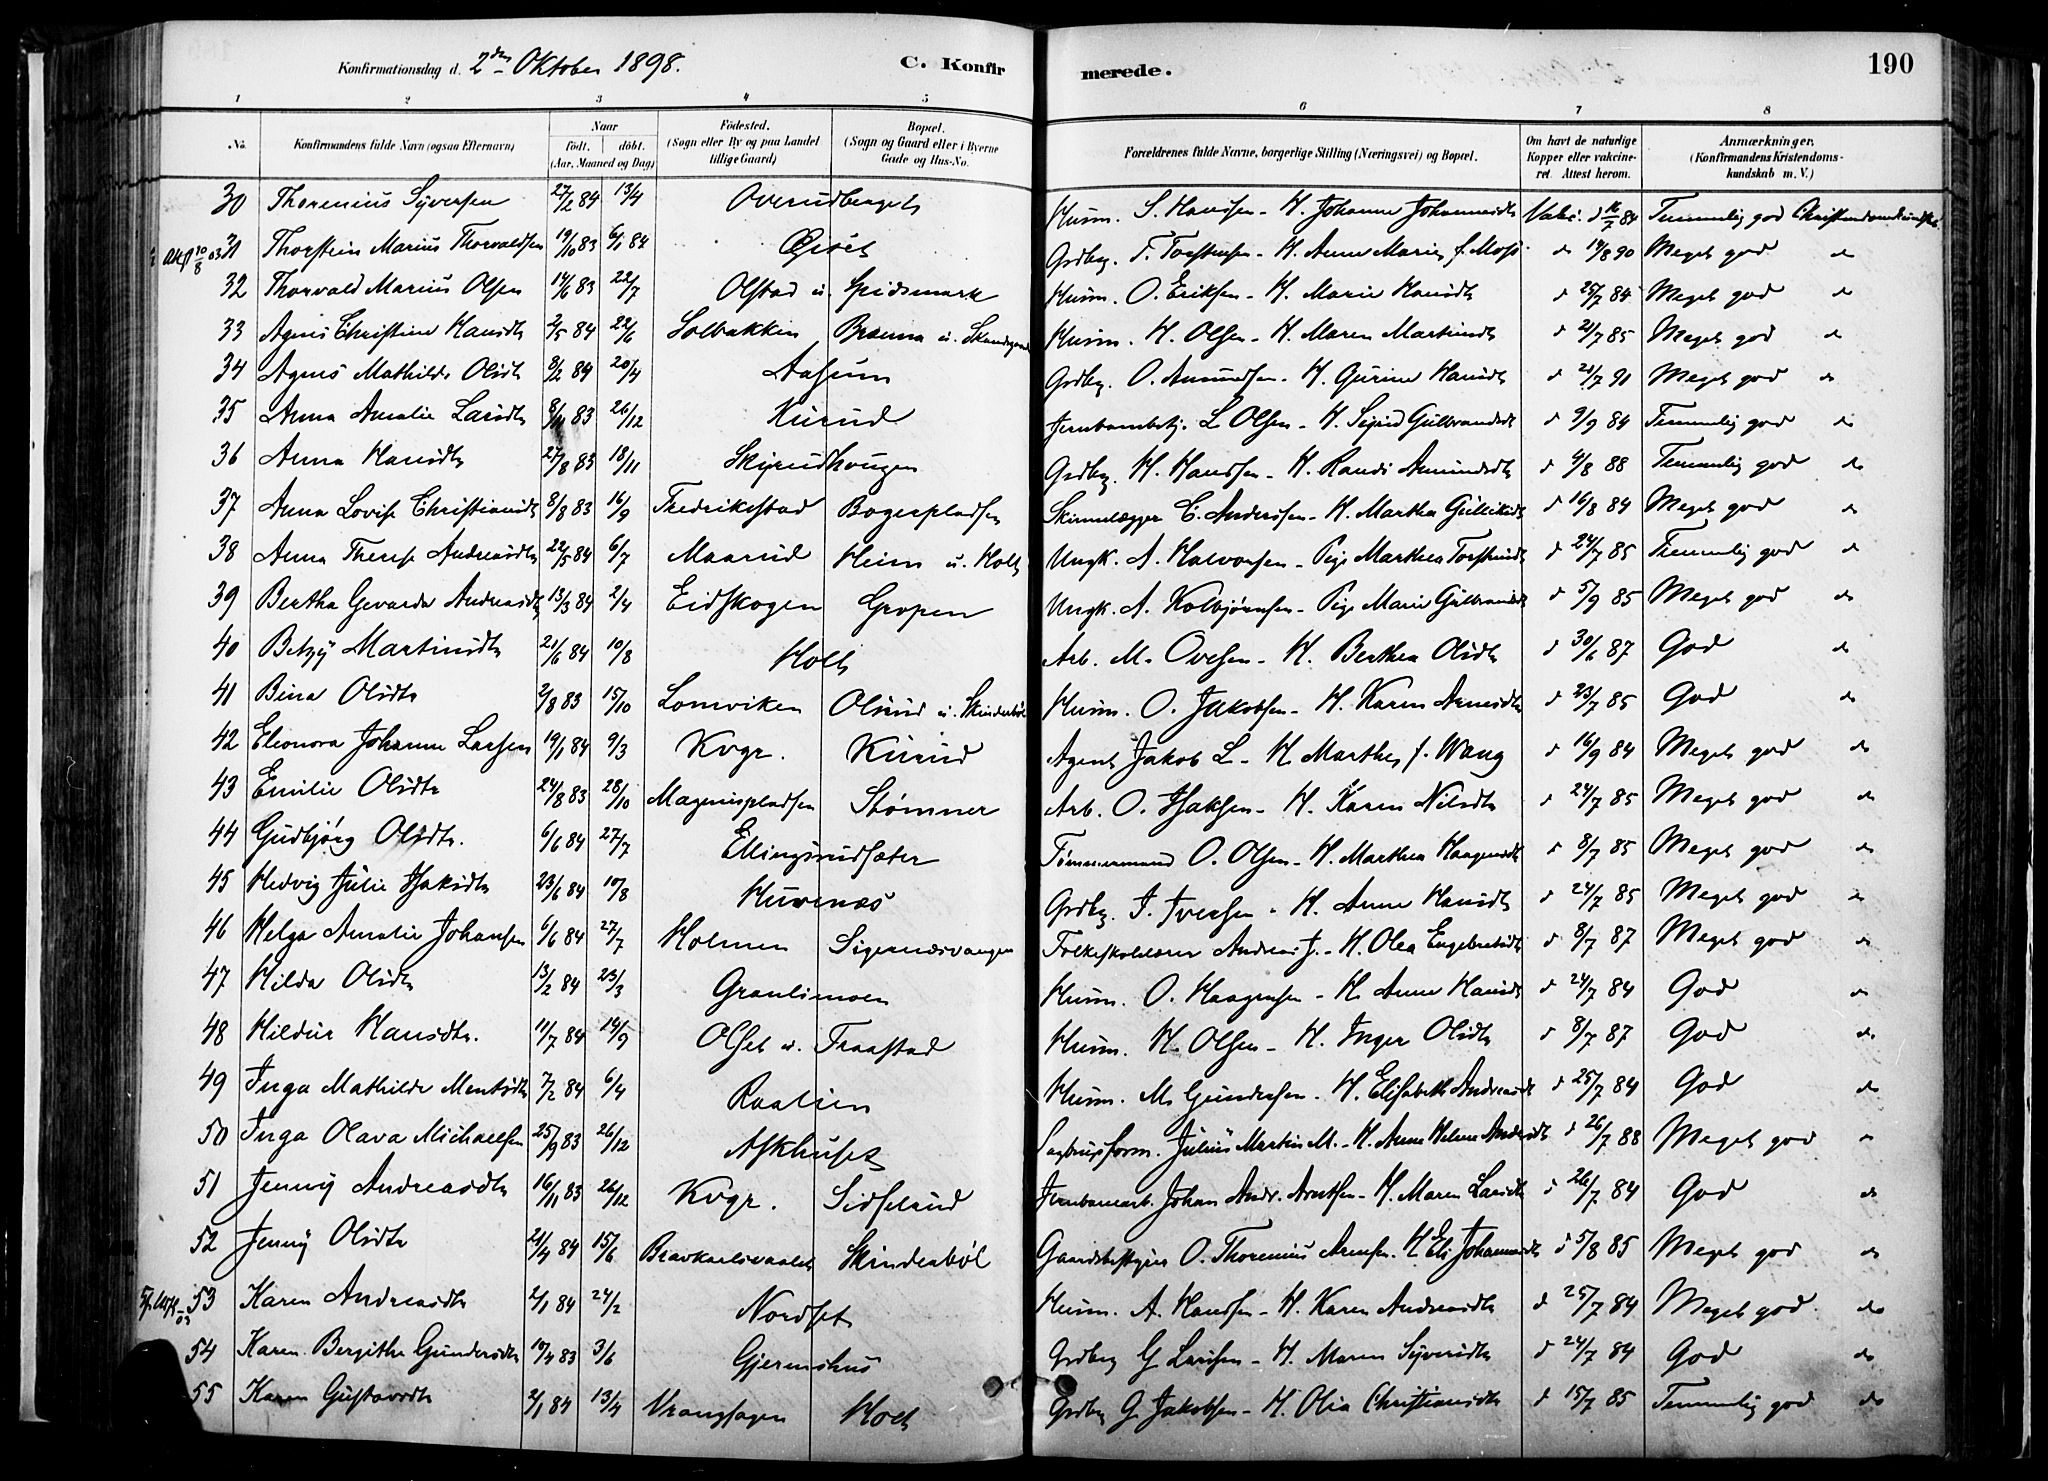 Konfirmationsdag d. 2den Oktober 1898. C. Konfirmerede. 190
1 2 3 4 5 6 7 8
No. Konfirmandens fulde Navn (ogsaa Efternavn) Naar födt. döbt. (Aar, Maaned og Dag) Födested. (Sogn eller By og paa Landet tillige Gaard) Bopæl. (Sogn og Gaard eller i Byerne Gade og Hus-No. Forældrenes fulde Navne, borgerlige Stilling (Næringsvei) og Bopæl. Om havt de naturlige Kopper eller vakcineret. Attest herom. Anmærkninger. (Konfirmandens Kristendomskundskab m. V.)
30 Thorenius Syversen 27/2 84 13/4 Overudberget Husm. S. Hansen - H. Johanne Johannesdt Vakc. d 84 Temmelig god Christendomskundskab
31 Thorstein Marius Thorvaldsen 19/10 83 6/1 84 Gjöset Grdbr. T. Torstensen - H. Anne Marie f. Moss do 14/8 90 Meget god do
32 Thorvald Marius Olsen 14/6 83 22/7 Olstad u. Spidsmark Husm. O. Eriksen - H. Marie Hansdt d 25/7 84 Meget god do
33 Agnes Christine Hansdt 2/5 84 22/6 Solbakken Brænna u. Husm. H. Olsen - H. Maren Martinsdt d 21/7 85 Meget god do
34 Agnes Mathilde Olsdt 8/2 84 20/4 Aasum Grdbr. O. Amundsen - H. Gurine Hansdt d 21/7 91 Meget god do
35 Anna Amalie Larsdt 8/11 83 26/12 Kurud Jernbanebetj. L Olsen - H. Sigrid Gulbrandsdt d 9/9 84 Temmelig god do
36 Anna Hansdt 27/8 83 18/11 Skyrudhaugen Grdbr. H. Hansen - H. Randi Amundsdt d 4/8 88 Temmelig god do
37 Anna Lovise Christiansdt 8/8 83 16/9 Fredrikstad Bogerpladsen Skinnelægger C. Anderssen - H. Martha Gulliksdt d 16/8 84 Meget god do
38 Anna Therese Andreasdt 22/5 84 6/7 Maarud Heim u. Holt Ungk. A. Halvorsen - Pige Marthea Torstensdt d 24/7 85 Temmelig god do
39 Bertha Gevarda Andreasdt 13/3 84 2/4 Eidskogen Gropen Ungk. A. Kolbjörnsen - Pige Marie Gulbrandsdt d 5/9 85 Meget god do
40 Betzy Martinsdt 21/6 84 10/8 Holt Arb. M. Ovesen - H. Berthea Olsdt d 30/6 87 God do
41 Bina Olsdt 2/8 83 15/10 Lomviken Olsrud u. Skinderböl Husm. O. Jakobsen - H. Karen Arnesdt d 23/7 85 God do
42 Eleonora Johanne Larsen 19/1 84 9/3 Kvgr. Kurud Agent Jakob L - H. Marthe f. Wang d 16/9 84 Meget god do
43 Emilie Olsdt 24/8 83 28/10 Magnuspladsen Stömner Arb. O. Isaksen - H. Karen Nilsdt d 24/7 85 Meget god do
44 Gudbjörg Olsdt. 6/6 84 27/7 Ellingsrudsæter Tömmermand O. Olsen - H. Marthea Haagensdt d 8/7 85 Meget god do
45 Hedvig Julie Isaksdt 23/6 84 10/8 Huvenæs Grdbr. I. Iversen - H. Anne Hansdt d 24/7 85 Meget god do
46 Helga Amalie Johansen 6/6 84 27/7 Holmen Sigernæsvangen Folkeskolelærer Andreas J. - H. Olea Engebretsdt d 8/7 87 Meget god do
47 Hilda Olsdt 13/2 84 23/3 Granlimoen Husm. O. Haagensen - H. Anne Hansdt d 24/7 84 God do
48 Hildur Hansdt. 11/7 84 14/9 Olset u. Fraastad Husm. H. Olsen - H. Inger Olsdt d 8/7 87 God do
49 Inga Mathilde Mentsdt 7/2 84 6/4 Raalien Husm. M. Gundersen - H. Elisabeth Andreasdt d 25/7 84 God do
50 Inga Olava Michaelsen 25/9 83 26/12 Askhuset Julius Martin M. - H. Anne Helene Andersdt d 26/7 88 Meget god do
51 Jenny Andreasdt 16/11 83 26/12 Kvgr. Sidselrud Jernbanearb. Johan Andr. Arntsen - H. Maren Larsdt d 26/7 84 God do
52 Jenny Olsdt 21/4 84 15/6 Skinderböl Gaardsbestyrer O. Thorenius Arnesen - H. Eli Johannesdt d 5/8 85 Meget god do
53 Karen Andreasdt 2/1 84 24/2 Nordset Husm. A. Hansen - H. Karen Andreasdt d 25/7 84 Meget god do
54 Karen Bergithe Gundersdt 10/4 83 3/6 Gjermshus Grdbr G Larsen - H. Maren Syversdt d 24/7 84 God do
55 Karen Gustavsdt 2/1 84 13/4 Vranghagen Holt Grdbr G Jakobsen - H. Olia Christiansdt d 15/7 85 Temmelig god do